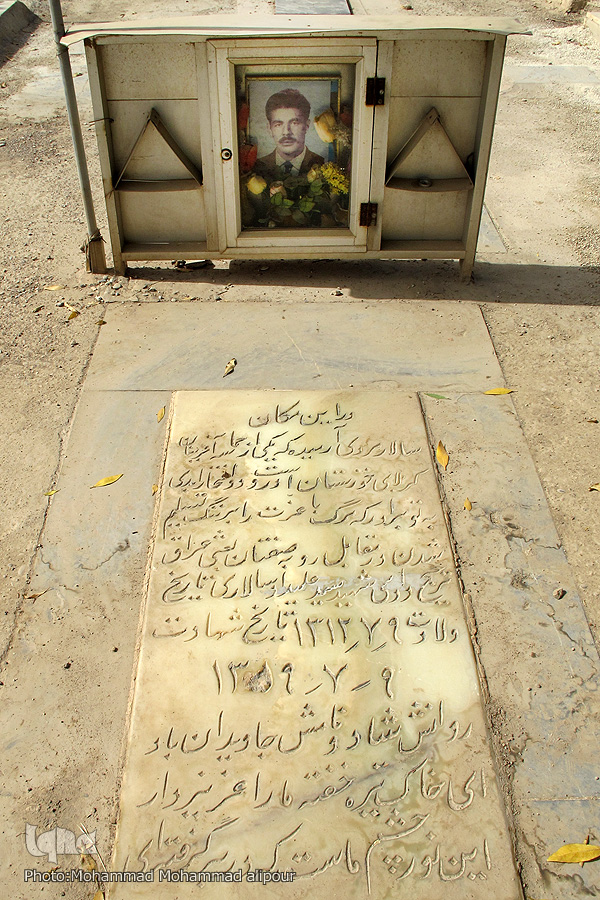 در این مکان
سالار مردی آرمیده که یکی از حماسه آفرینان
کربلای خوزستان است درود و افتخار ابدی
به تو برادر که مرگ با عزت را به ننگ تسلیم
شدن در مقابل رو صفتان بعثی عراق
ترجیح دادی شهید سعید سالاری تاریخ
ولادت ۱۳۱۳٫۷٫۹ تاریخ شهادت
۱۳۵۹٫۷٫۹
روانش شاد و نامش جاویدان باد
ای خاک تیره خفته ما را عزیز دار
این نور چشم ماست که در بر گرفته‌ای
iqna
Photo:Mohammad Mohammad alipour